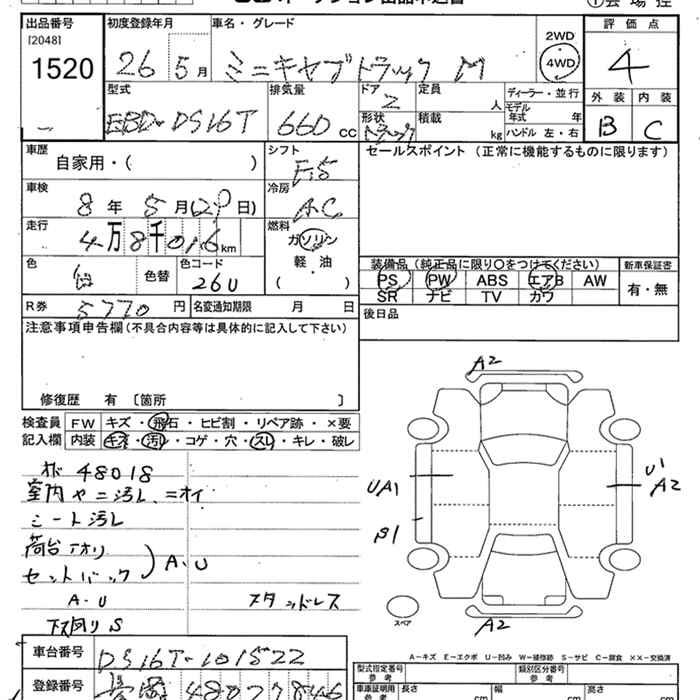 出品番号 初度登録年月 車名・グレード 評価点
[2048] 26 5月 ミニキャブトラック M 2WD 4WD 4
1520
外装 内装
B C
型式 排気量 ドア 定員 ディーラー・並行
EBD-DS16T 660 CC 2 人 モデル年式 年
形状 積載 kg ハンドル 左・右
トラック
車歴 シフト セールスポイント (正常に機能するものに限ります)
自家用・( ) F5
車検 冷房
8年 5月(29日) AC
走行 燃料
4万8千016km ガソリン
軽・油
( )
色 色替 色コード 装備品(純正品に限り○をつけてください) 新車保証書
白 26U PS PW ABS エアB AW 有・無
SR ナビ TV カワ
R券 5770円 名変通知期限 月 日 後日品
注意事項申告欄(不具合内容等は具体的に記入して下さい)
修復歴 有 〔箇所 〕
検査員 FW キズ・飛石・ヒビ割・リペア跡・×要
記入欄 内装 キズ・汚レ・コゲ・穴・スレ・キレ・破レ
48018
室内ヤニ汚レ ニオイ
シート汚レ
荷台アオリ
セットバック A・U
A・U スタッドレス
下廻りS
A2
UA1
U1
A2
S1
スペア
A2
A-キズ E-エクボ U-凹み W-補修跡 S-サビ C-腐食 ××-交換済
車台番号 DS16T-101522
登録番号 480 7846
型式指定番号 参考 類別区分番号 参考
車庫証明用 参考 長さ cm 幅 cm 高さ cm